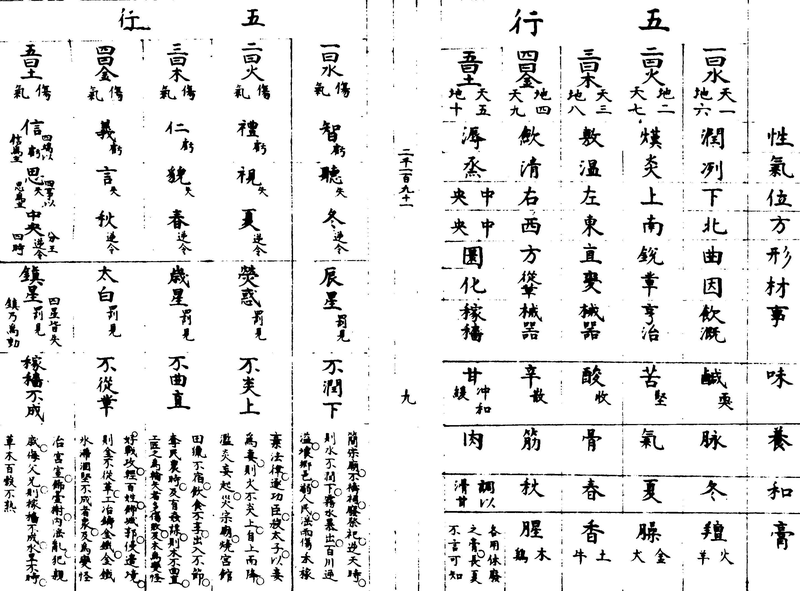 五行
性氣位方形材事味養和膏
一曰水 天一地六 潤 冽 下 北 曲 因 飲溉 鹹 耎 脉 冬 羶 火羊
二曰火 地二天七 熯 炎 上 南 銳 革 亨冶 苦 堅 氣 夏 臊 金犬
三曰木 天三地八 敷 溫 左 東 直 變 械器 酸 收 骨 春 香 土牛
四曰金 地四天九 歛 清 右 西 方 從革 械器 辛 散 筋 秋 腥 木鷄
五曰土 天五地十 溽 蒸 中央 中央 圜 化 稼穡 甘 冲和緩 肉 調以滑甘 各用休廢之膏長夏不言可知
二千一百九十一
九
五行
一曰水 傷氣 智虧 聽失 冬逆令 辰星罰見 不潤下
簡宗廟不禱祠廢祭祀逆天時
則水不潤下霧水暴出百川逆
溢壞鄉邑溺人民淫雨傷稼穡
二曰火 傷氣 禮虧 視失 夏逆令 熒惑罰見 不炎上
棄法律逐功臣殺太子以妾
為妻則火不炎上自上而降
濫炎妄起災宗廟燒宮館
三曰木 傷氣 仁虧 貌失 春逆令 歲星罰見 不曲直
田獵不宿飲食不享出入不節
奪民農時及有姦謀則木不曲直
工匠之為輪矢者多傷敗及木為變怪
四曰金 傷氣 義虧 言失 秋逆令 太白罰見 不從革
好戰攻輕百姓飾城郭侵邊境
則金不從革冶鑄金鐵金鐵
水滯涸堅不成者衆及為變怪
五曰土 傷氣 信虧 四端以信為主 思失 四事以思為主 中央逆令 分王四時 鎮星罰見 四星皆失鎮乃為動 稼穡不成
治宮室飾臺榭內淫亂犯親
戚侮父兄則稼穡不成水旱不時
草木百穀不熟